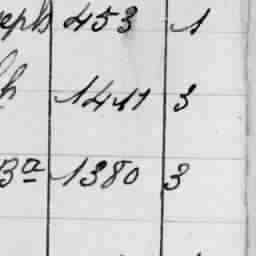 eph 453 1
h 1411 3
Ba 1380 3